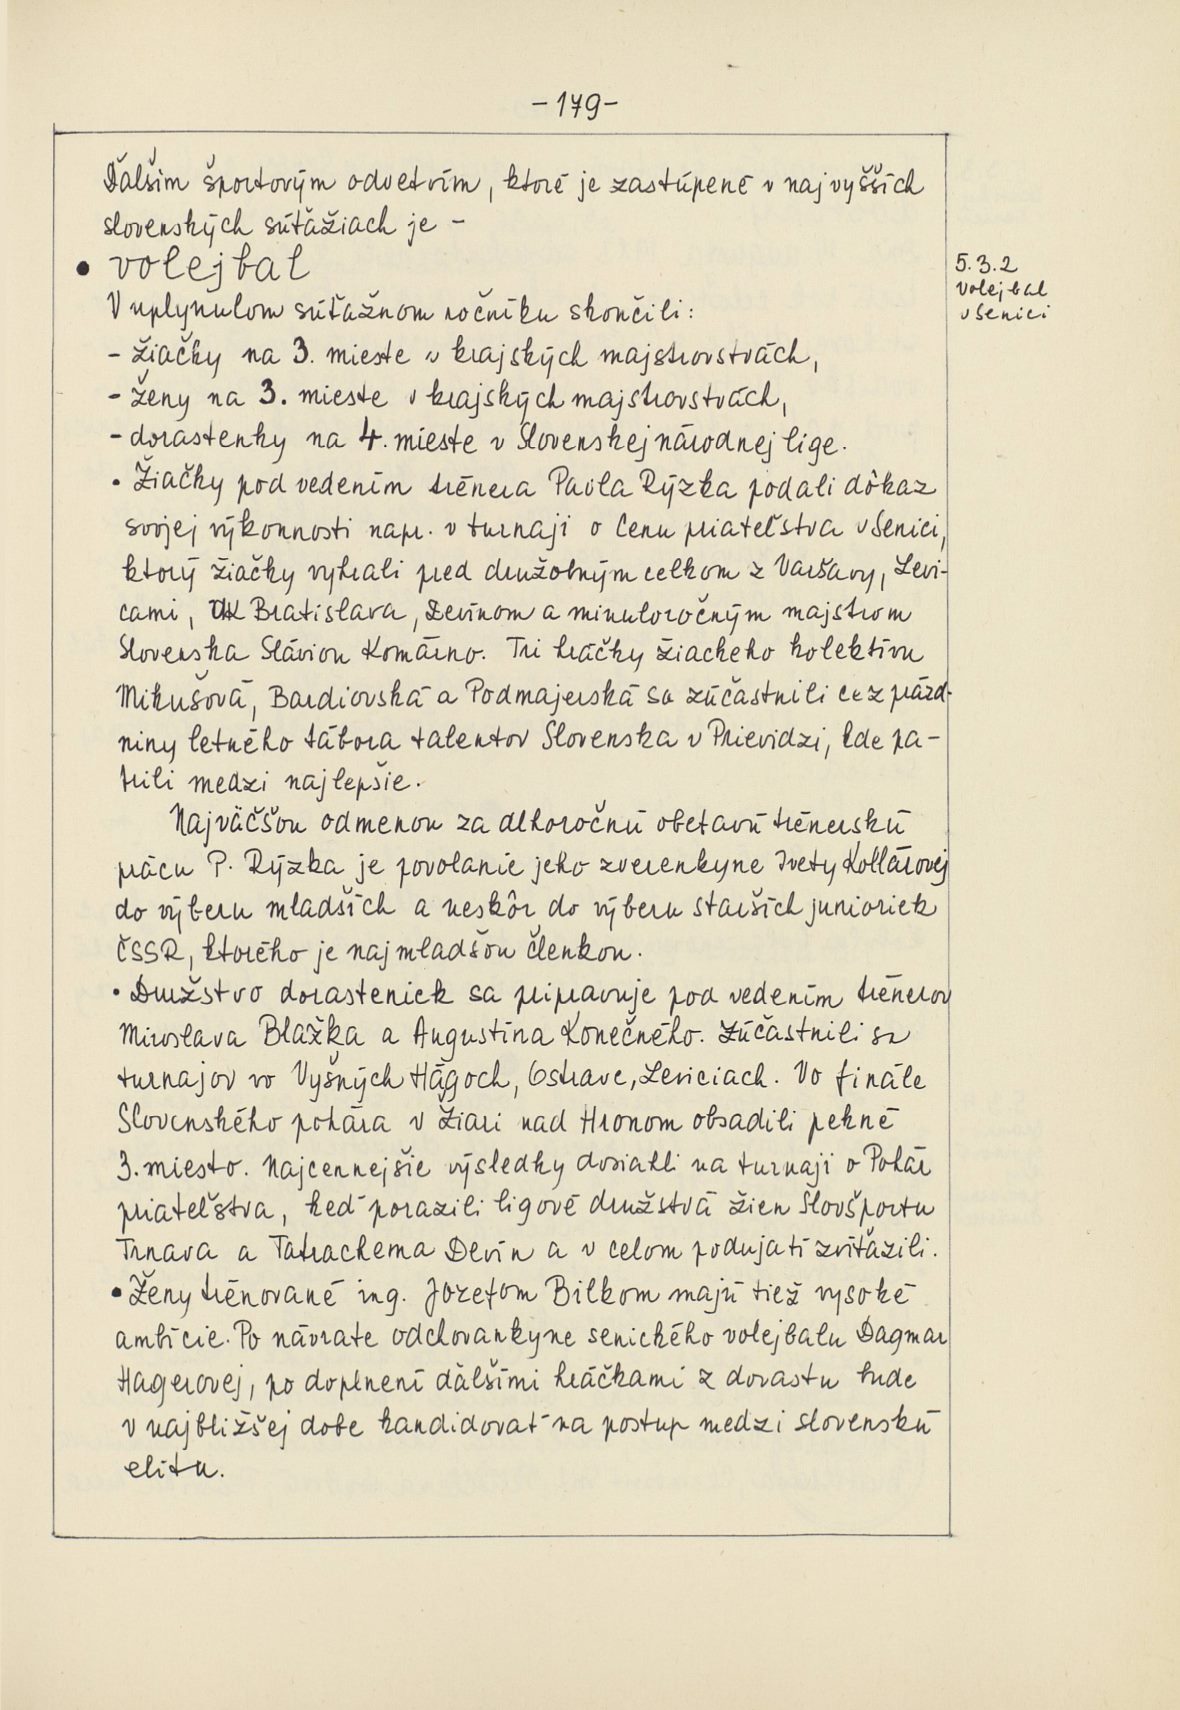 - 179 -
Ďalším športovým odvetvím, ktoré je zastúpené v najvyšších
slovenských súťažiach je -
• volejbal
5.3.2
volejbal
v Senici
V uplynulom súťažnom ročníku skončili:
- žiačky na 3. mieste v krajských majstrovstvách,
- ženy na 3. mieste v krajských majstrovstvách,
- dorastenky na 4. mieste v Slovenskej národnej lige.
• Žiačky pod vedením trénera Pavla Rýzka podali dôkaz
svojej výkonnosti napr. v turnaji o Cenu priateľstva v Senici,
ktorý žiačky vyhrali pred družobným celkom z Varšavy, Levi-
cami, Bratislava, Devínom a minuloročným majstrom
Slovenska Sláviou Komárno. Tri hráčky žiackeho kolektívu
Mikušová, Bardiovská a Podmajerská sa zúčastnili cez prázd-
niny letného tábora talentov Slovenska v Prievidzi, kde pa-
trili medzi najlepšie.
Najväčšou odmenou za dlhoročnú obetavú trénerskú
prácu P. Rýzka je povolanie jeho zverenkyne Ivety Kollárovej
do výberu mladších a neskôr do výberu starších junioriek
ČSSR, ktorého je najmladšou členkou.
• Družstvo dorasteniek sa pripravuje pod vedením trénerov
Miroslava Blažka a Augustína Konečného. Zúčastnili sa
turnajov vo Vyšných Hágoch, Ostrave, Leviciach. Vo finále
Slovenského pohára v Žiari nad Hronom obsadili pekné
3. miesto. Najcennejšie výsledky dosiahli na turnaji o Pohár
priateľstva, keď porazili ligové družstvá žien Slovšportu
Trnava a Tatrachema Devín a v celom podujatí zvíťazili.
• Ženy trénované ing. Jozefom Bilkom majú tiež vysoké
ambície. Po návrate odchovankyne senického volejbalu Dagmar
Hagerovej, po doplnení ďalšími hráčkami z dorastu bude
v najbližšej dobe kandidovať na postup medzi slovenskú
elitu.